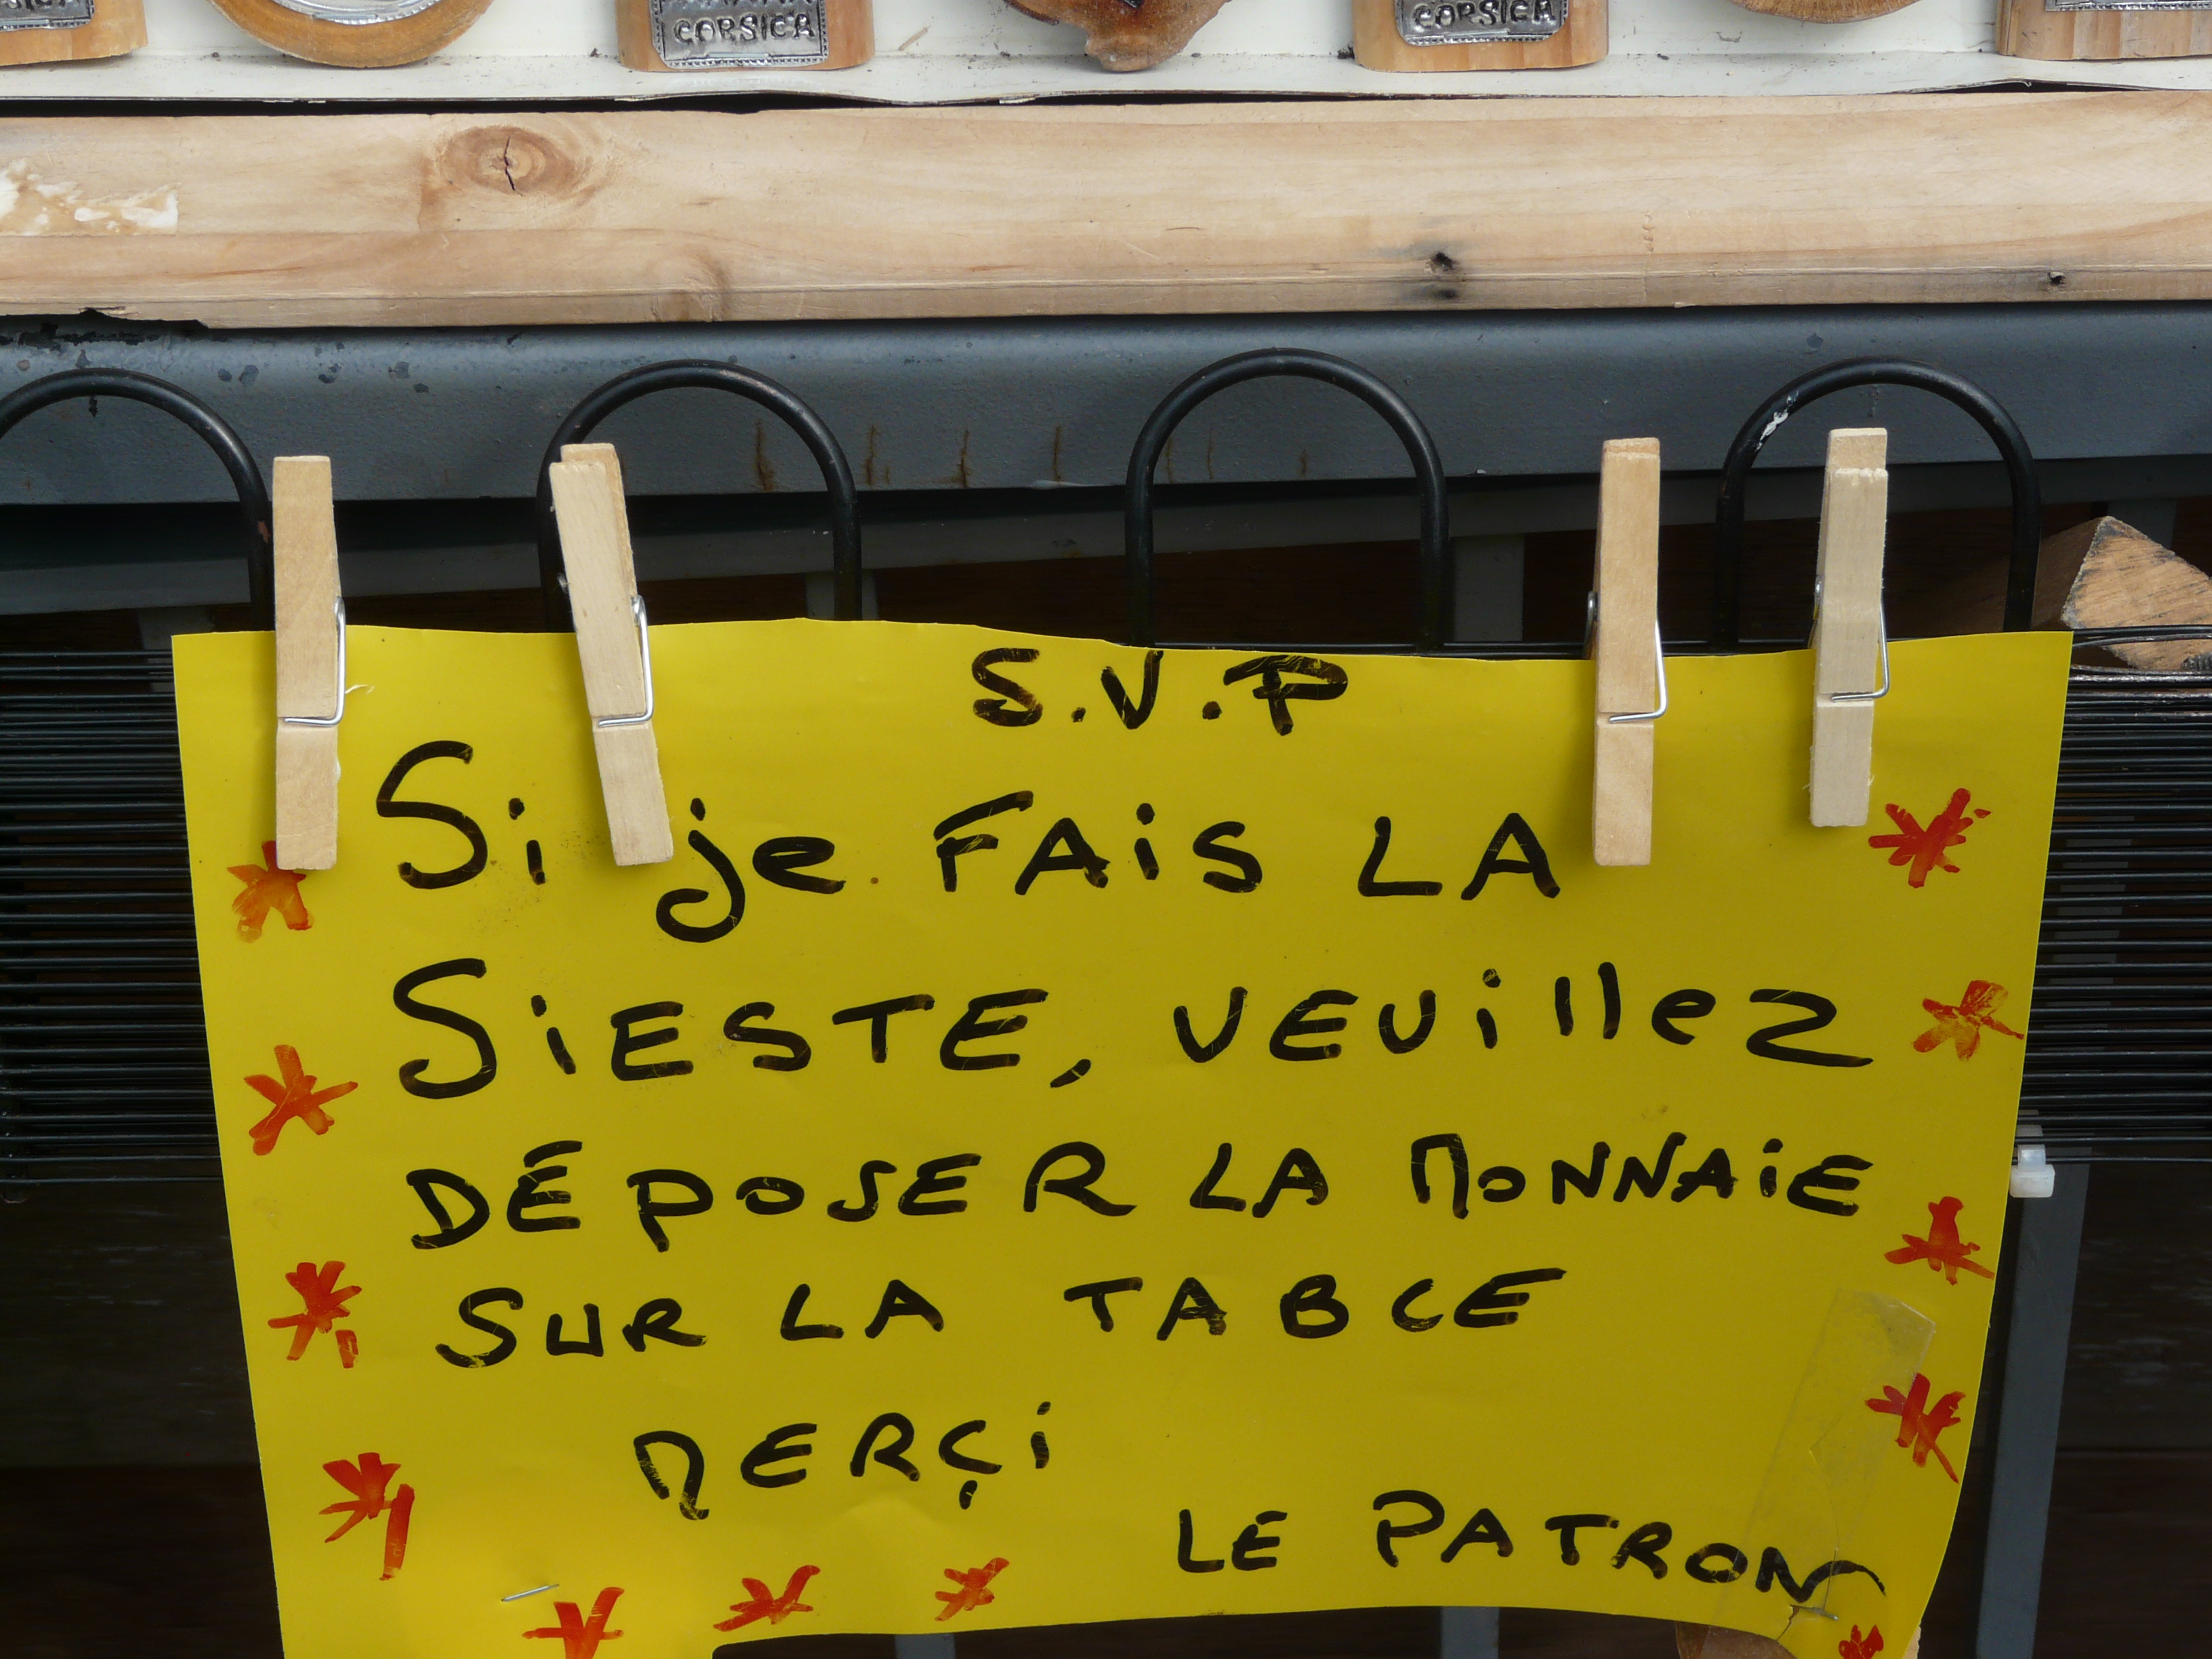 CORSICA
CORSICA
S.V.P
Si je FAiS LA
SiESTE, VEUillez
DÉPOSER LA MONNAiE
SUR LA TABLE
MERÇi
LE PATRON